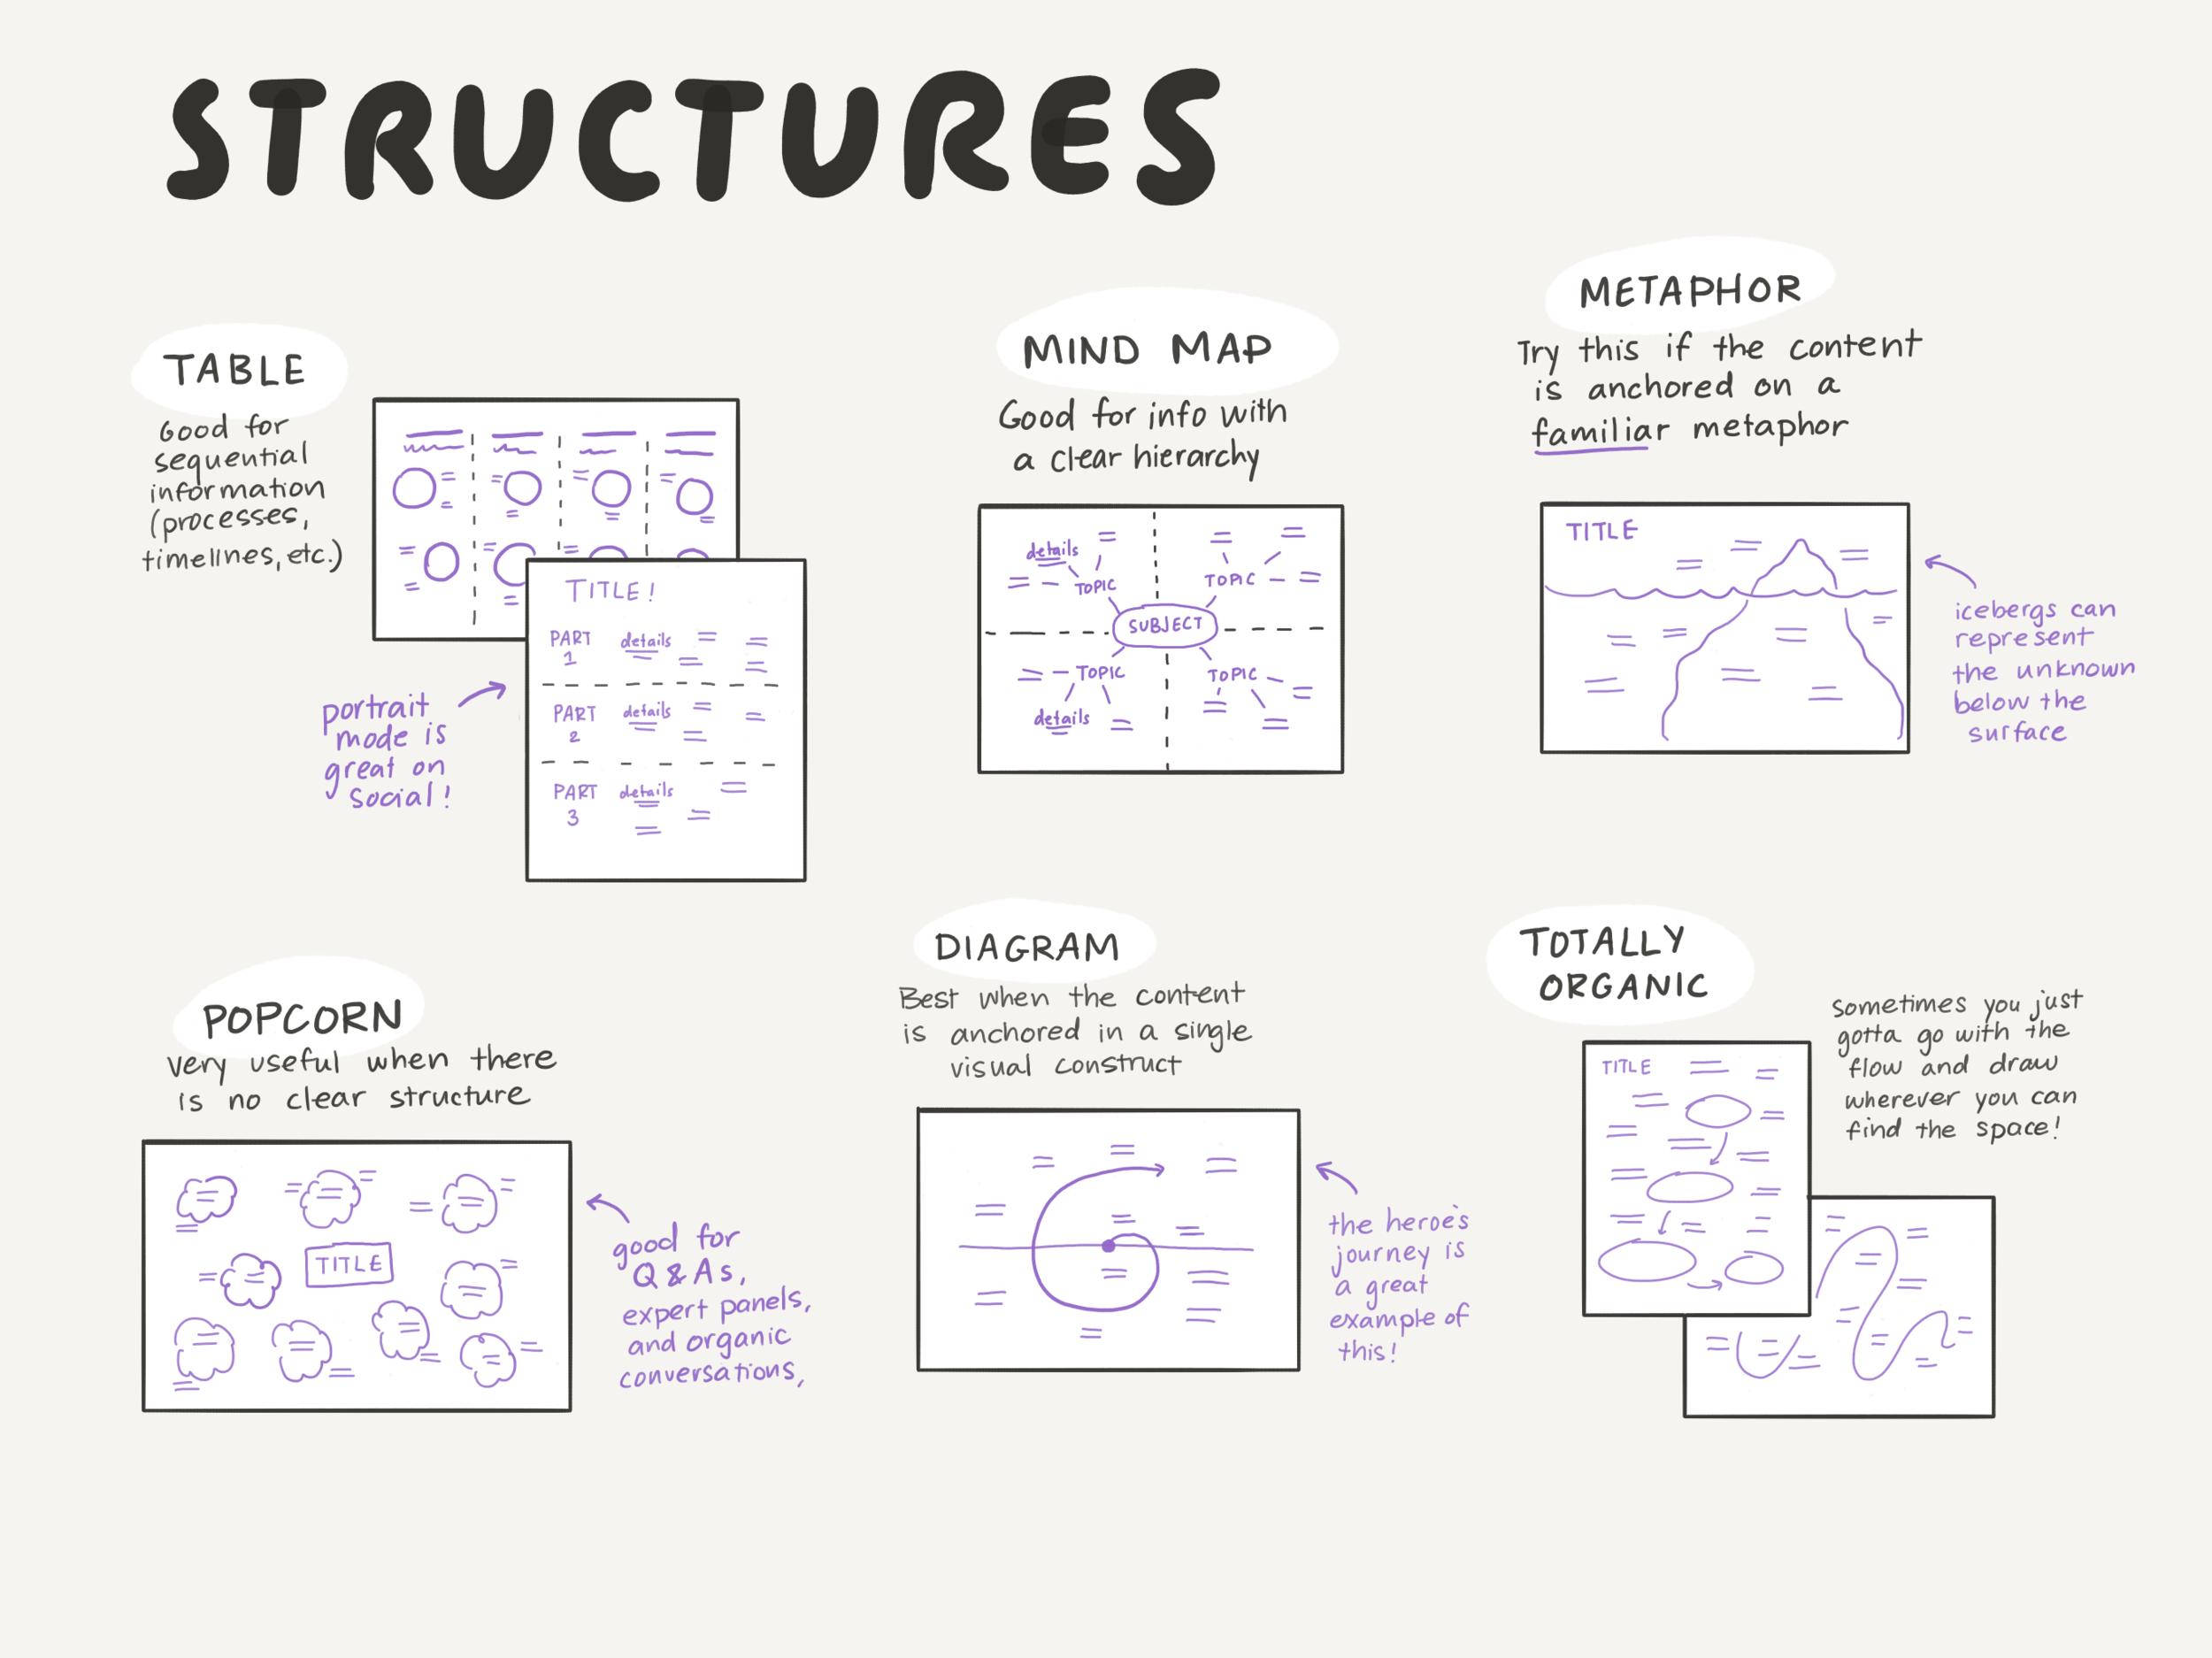 STRUCTURES
TABLE
Good for
sequential
information
(processes,
timelines, etc.)
TITLE!
PART
1
details
PART
2
details
PART
3
details
portrait
mode is
great on
social!
MIND MAP
Good for info with
a clear hierarchy
details
TOPIC
TOPIC
SUBJECT
TOPIC
TOPIC
details
METAPHOR
Try this if the content
is anchored on a
familiar metaphor
TITLE
icebergs can
represent
the unknown
below the
surface
POPCORN
very useful when there
is no clear structure
TITLE
good for
Q & As,
expert panels,
and organic
conversations,
DIAGRAM
Best when the content
is anchored in a single
visual construct
the heroe's
journey is
a great
example of
this!
TOTALLY
ORGANIC
sometimes you just
gotta go with the
flow and draw
wherever you can
find the space!
TITLE